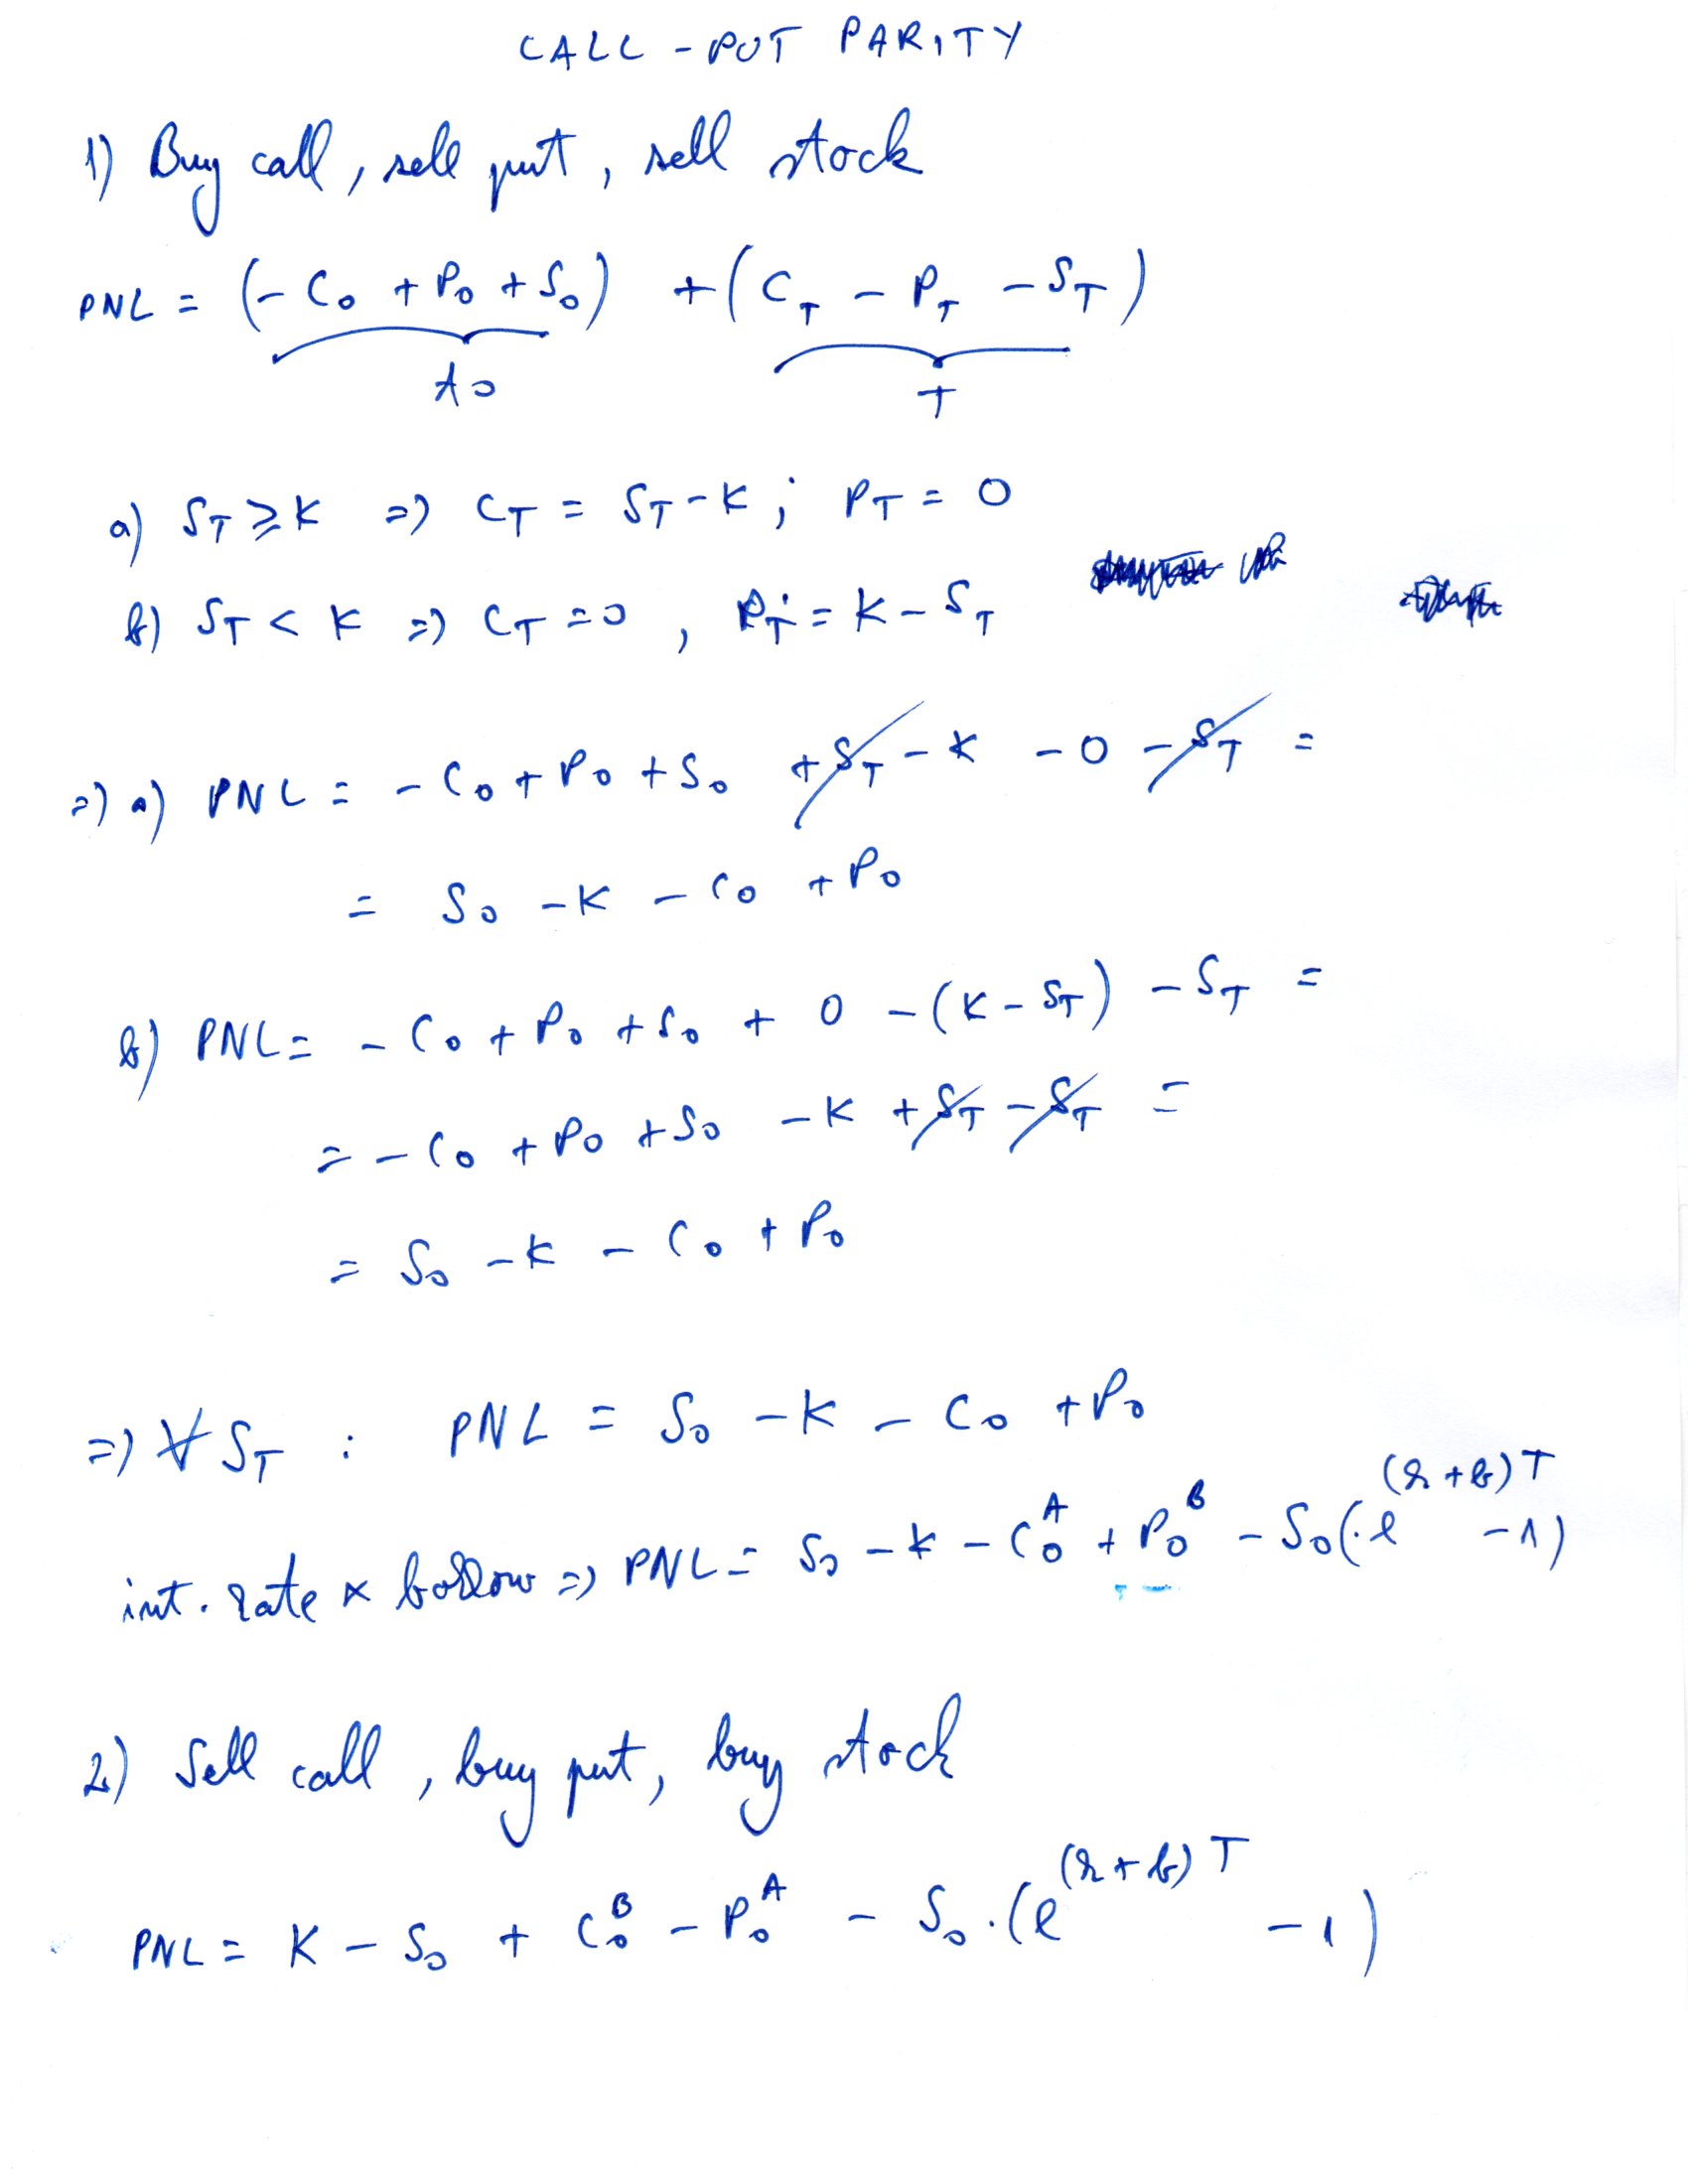 CALL - PUT PARITY
1) Buy call, sell put, sell stock
PNL = (- C₀ + P₀ + S₀) + (C_T - P_T - S_T)
t₀ T
a) S_T ⩾ K => C_T = S_T - K ; P_T = 0
b) S_T < K => C_T = 0 , P_T = K - S_T
=> a) PNL = - C₀ + P₀ + S₀ + S_T - K - 0 - S_T =
= S₀ - K - C₀ + P₀
b) PNL = - C₀ + P₀ + S₀ + 0 - (K - S_T) - S_T =
= - C₀ + P₀ + S₀ - K + S_T - S_T =
= S₀ - K - C₀ + P₀
=> ∀ S_T : PNL = S₀ - K - C₀ + P₀
int. rate & borrow => PNL = S₀ - K - C₀^A + P₀^B - S₀(·e^(r+b)T - 1)
2) Sell call, buy put, buy stock
PNL = K - S₀ + C₀^B - P₀^A - S₀·(e^(r+b)T - 1)